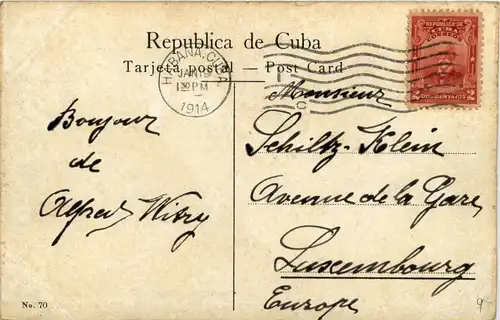 Republica de Cuba
Tarjeta postal — Post Card
HABANA, CUBA
JAN 19
1914
REPUBLICA DE
CUBA
CORREOS
2 DOS CENTAVOS 2
Bonjour
de
Alfred Witry
Monsieur
Schiltz-Klein
Avenue de la Gare,
Luxembourg
Europe
No. 70